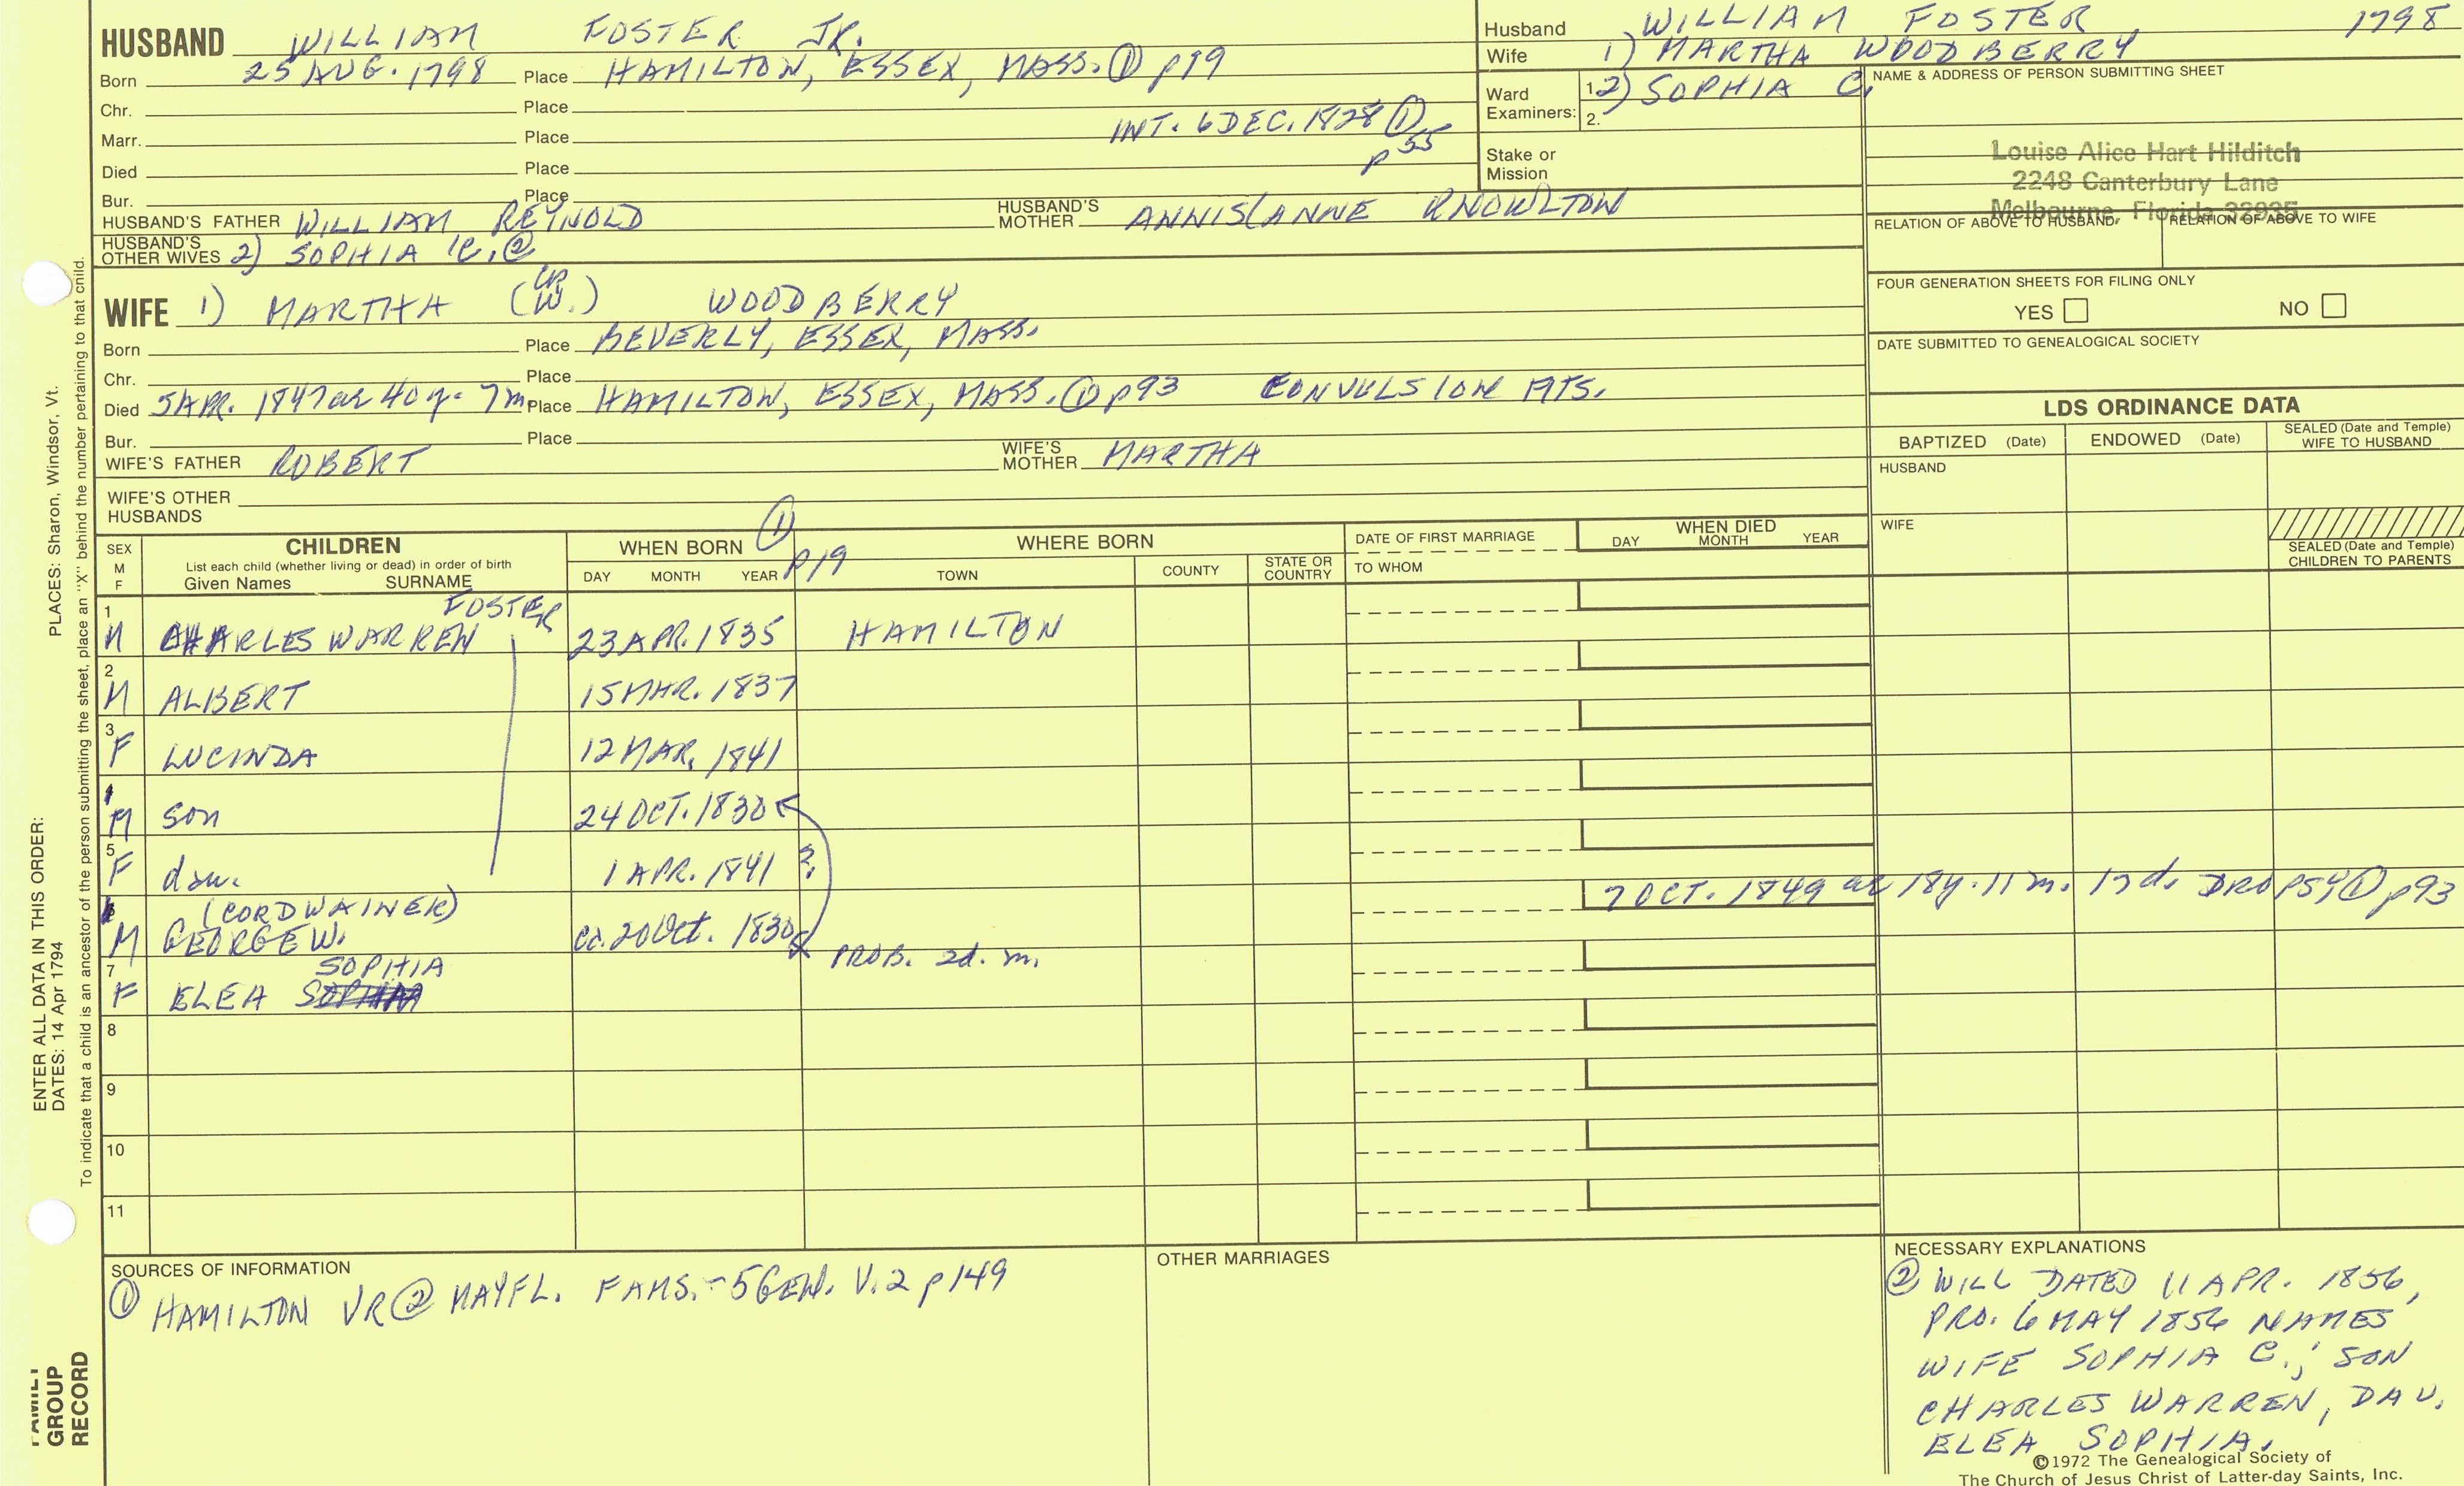 HUSBAND WILLIAM FOSTER JR.
Born 25 AUG. 1798 Place HAMILTON, ESSEX, MASS. ① p19
Chr. Place
INT. 6 DEC. 1828 ①
Marr. Place
p 55
Died Place
Bur. Place
HUSBAND'S FATHER WILLIAM REYNOLD HUSBAND'S MOTHER ANNIS/ANNE KNOWLTON
HUSBAND'S OTHER WIVES 2) SOPHIA C. ②
Husband WILLIAM FOSTER 1798
Wife 1) MARTHA WOODBERRY
Ward Examiners: 1. 2) SOPHIA C.
2.
Stake or Mission
NAME & ADDRESS OF PERSON SUBMITTING SHEET
Louise Alice Hart Hilditch
2248 Canterbury Lane
Melbourne, Florida 32935
RELATION OF ABOVE TO HUSBAND RELATION OF ABOVE TO WIFE
FOUR GENERATION SHEETS FOR FILING ONLY
YES NO
DATE SUBMITTED TO GENEALOGICAL SOCIETY
WIFE 1) MARTHA (W.) WOODBERRY
Born Place BEVERLY, ESSEX, MASS.
Chr. Place
Died 5 APR. 1847 ae 40 y. 7 m. Place HAMILTON, ESSEX, MASS. ① p93 CONVULSION FITS.
Bur. Place
WIFE'S FATHER ROBERT WIFE'S MOTHER MARTHA
WIFE'S OTHER HUSBANDS
LDS ORDINANCE DATA
BAPTIZED (Date) ENDOWED (Date) SEALED (Date and Temple) WIFE TO HUSBAND
HUSBAND
WIFE
SEALED (Date and Temple) CHILDREN TO PARENTS
SEX M F
CHILDREN
List each child (whether living or dead) in order of birth
Given Names SURNAME
WHEN BORN ① p19
DAY MONTH YEAR
WHERE BORN
TOWN COUNTY STATE OR COUNTRY
DATE OF FIRST MARRIAGE
TO WHOM
WHEN DIED
DAY MONTH YEAR
FOSTER
1 M CHARLES WARREN 23 APR. 1835 HAMILTON
2 M ALBERT 15 MAR. 1837
3 F LUCINDA 12 MAR. 1841
4 M son 24 OCT. 1830
5 F dau. 1 APR. 1841 ?
(CORDWAINER) 7 OCT. 1849 ae 18y. 11 m. 17 d. DROPSY ① p93
M GEORGE W. ca. 20 Oct. 1830
PROB. 2d. m.
SOPHIA
7 F ELEA SOPHIA
8
9
10
11
SOURCES OF INFORMATION
① HAMILTON VR ② MAYFL. FAMS. - 5 GEN. V. 2 p 149
OTHER MARRIAGES
NECESSARY EXPLANATIONS
② WILL DATED 11 APR. 1856,
PRO. 6 MAY 1856 NAMES
WIFE SOPHIA C.; SON
CHARLES WARREN, DAU.
ELEA SOPHIA.
©1972 The Genealogical Society of
The Church of Jesus Christ of Latter-day Saints, Inc.
ENTER ALL DATA IN THIS ORDER:
DATES: 14 Apr 1794 PLACES: Sharon, Windsor, Vt.
To indicate that a child is an ancestor of the person submitting the sheet, place an "X" behind the number pertaining to that child.
FAMILY GROUP RECORD